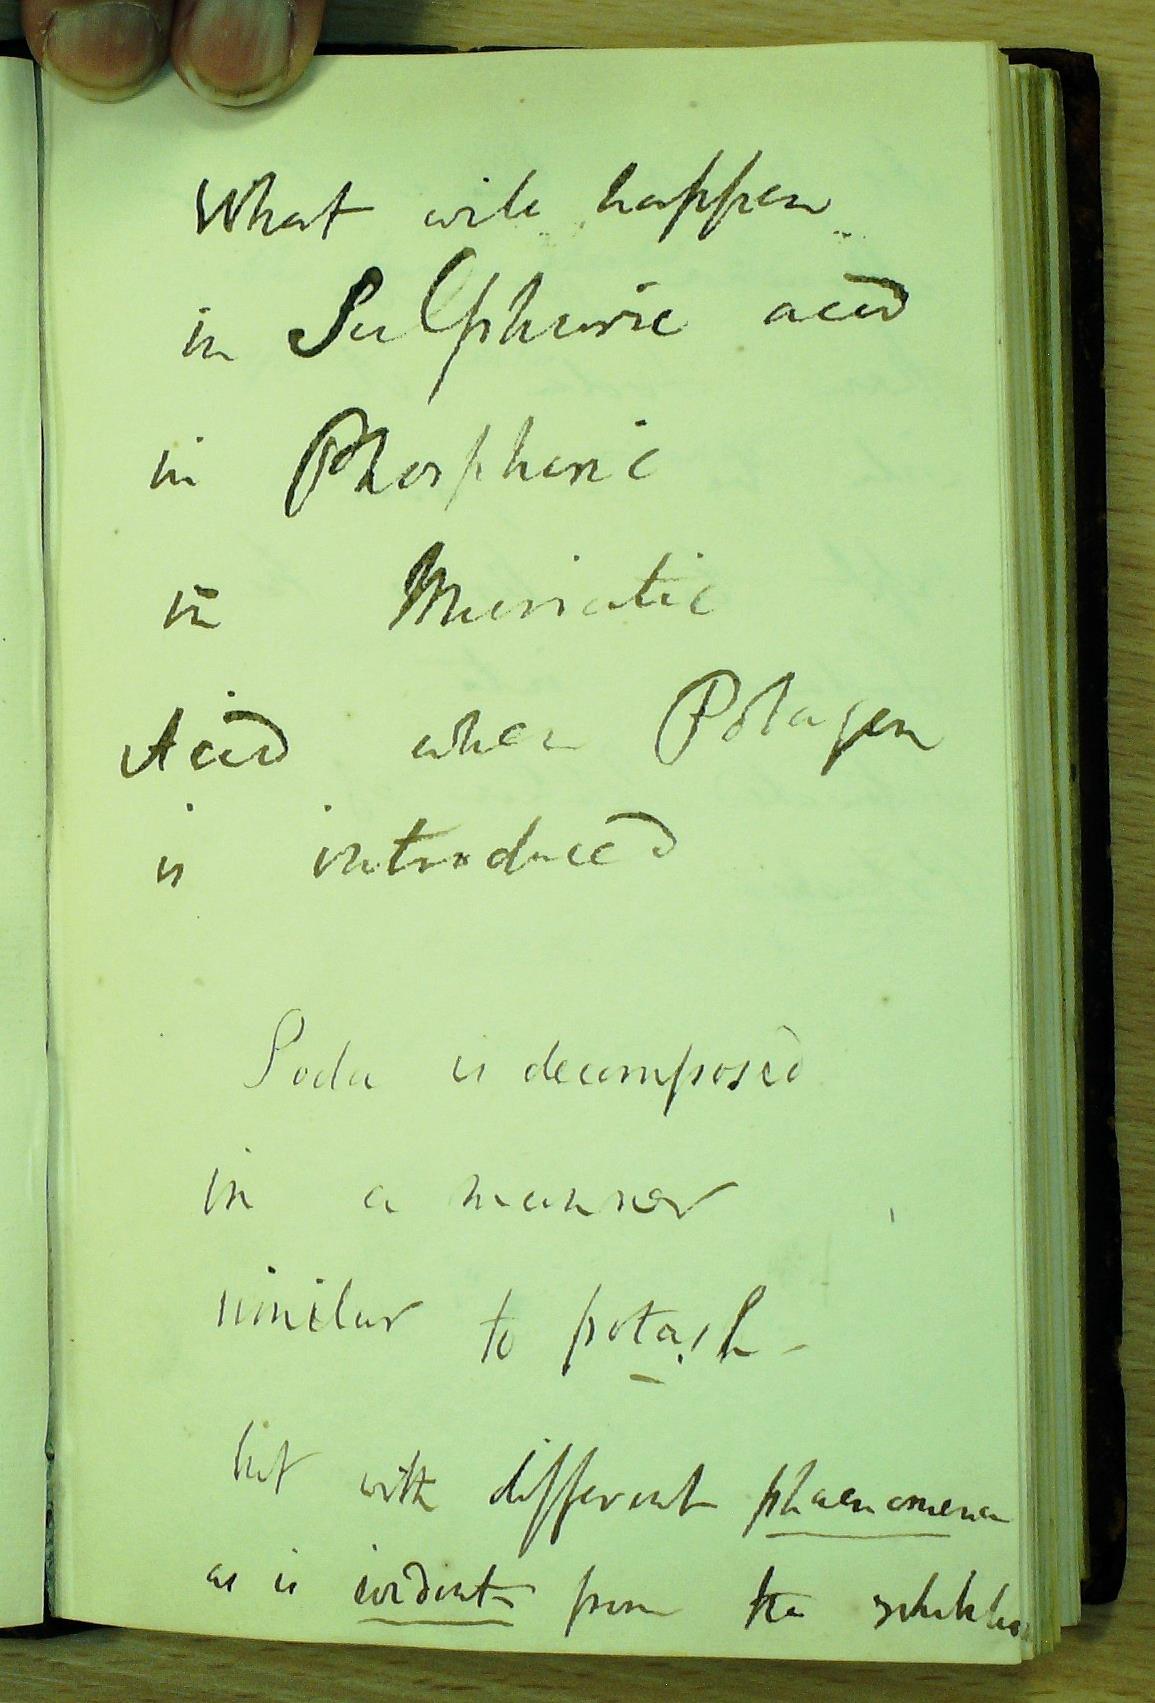 What will happen
in Sulphuric acid
in Phosphoric
in Muriatic
Acid when Potagen
is introduced
Soda is decomposed
in a manner
similar to potash -
but with different phaenomena
as is evident from the